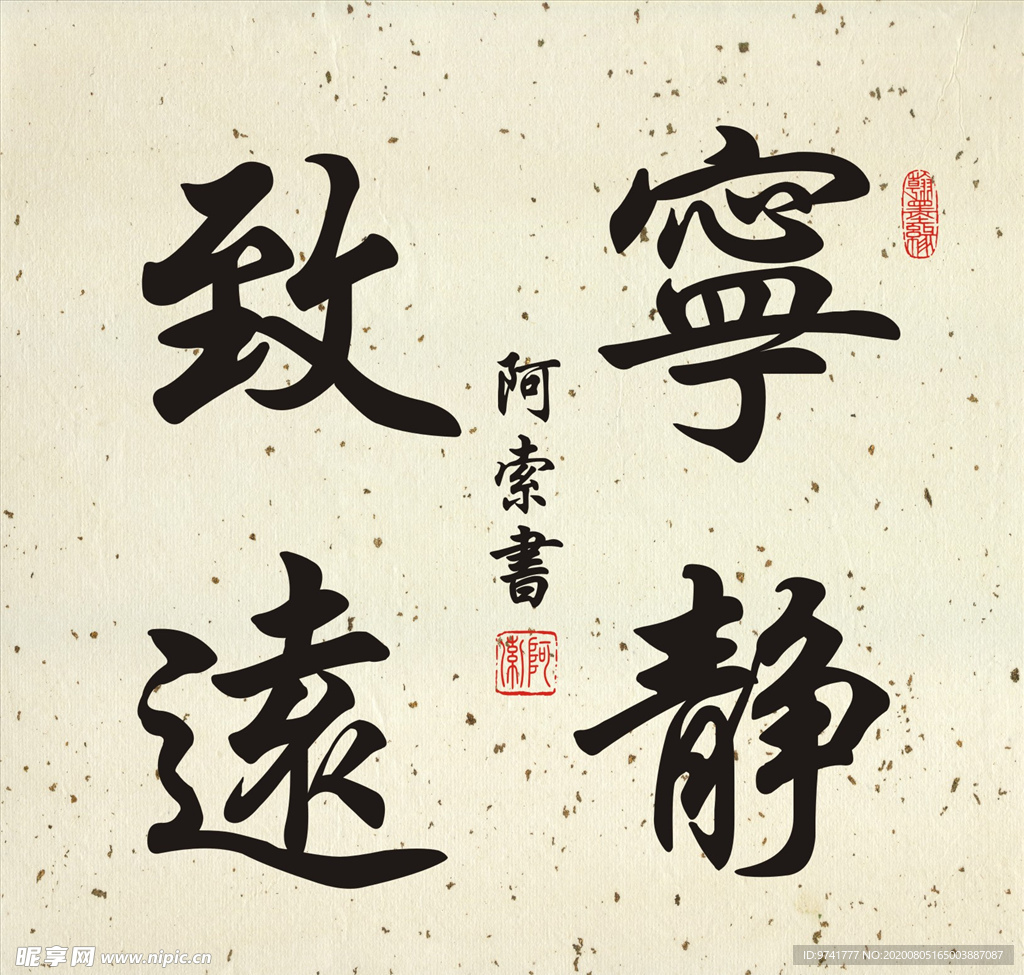 寧靜
致遠
阿索書
翰墨緣
阿索
昵享网 www.nipic.cn
ID:9741777 NO:20200805165003887087